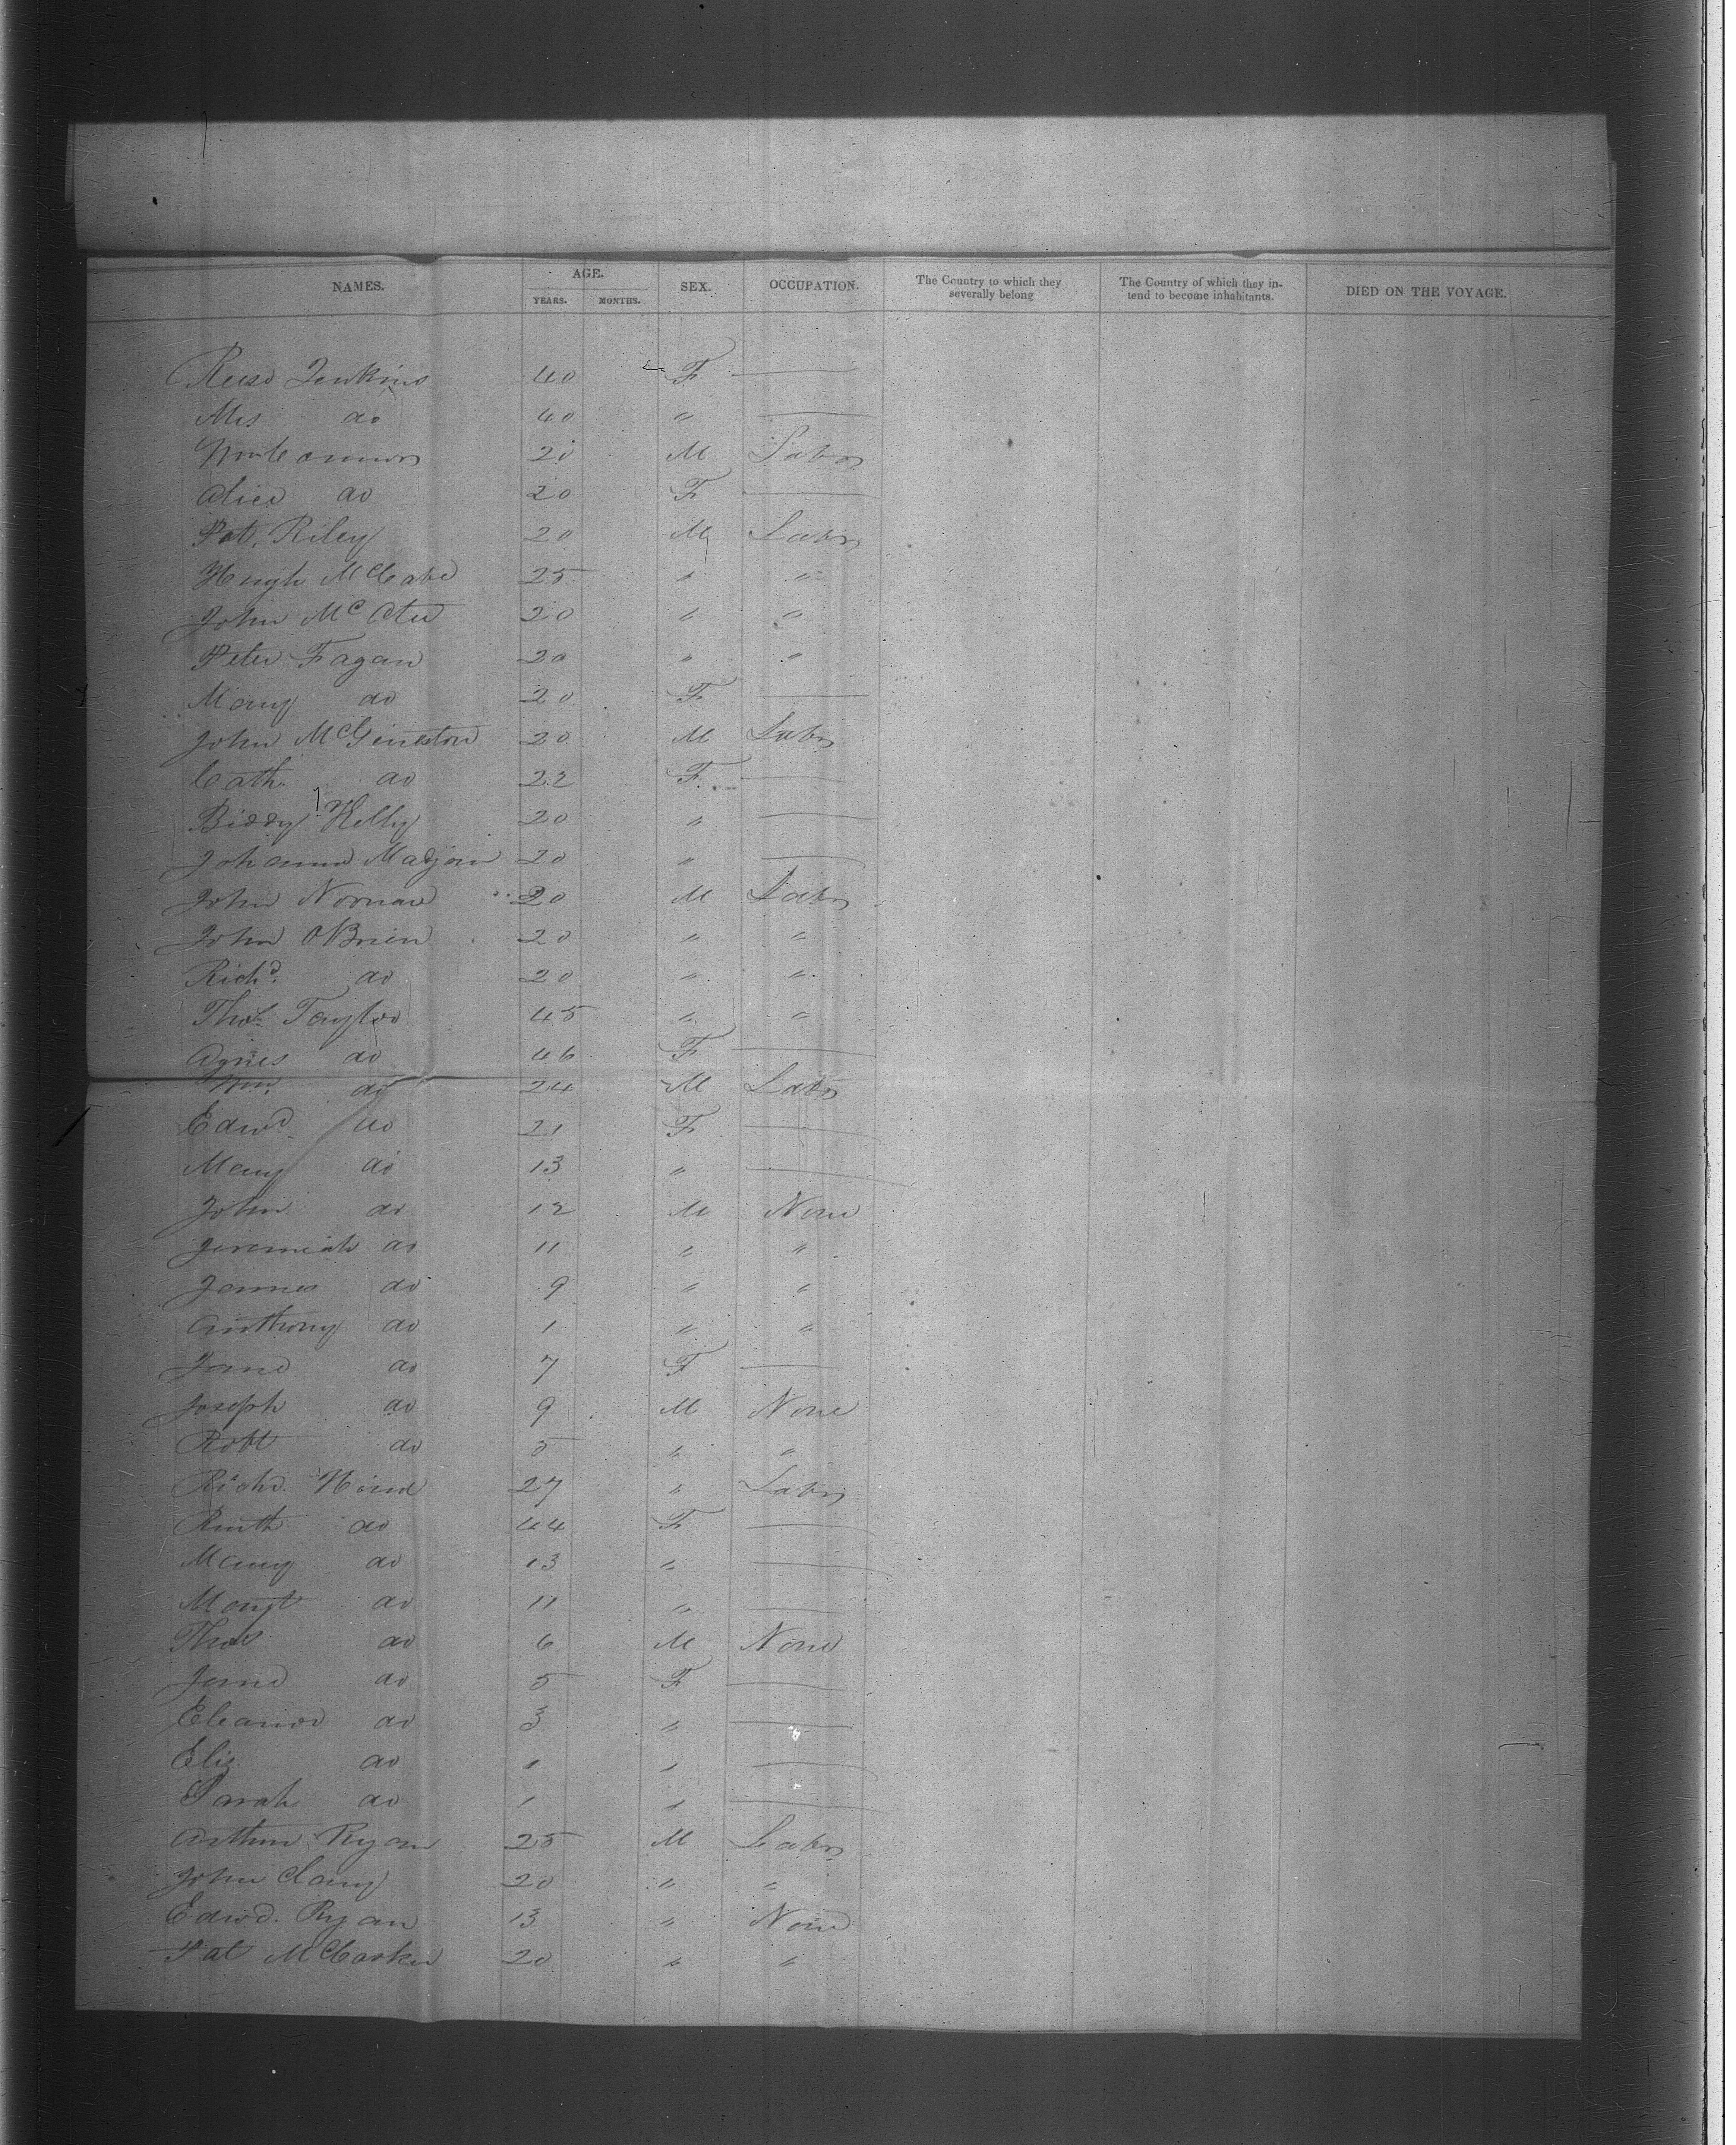 NAMES. AGE. YEARS. MONTHS. SEX. OCCUPATION. The Country to which they severally belong The Country of which they intend to become inhabitants. DIED ON THE VOYAGE.
Jenkins 40 F —
Mrs do 40 " —
Wm Connors 20 M Labr
Alice do 20 F —
Pat. Riley 20 M Labr
Hugh McCabe 25 " "
John Mc 20 " "
Peter Fagan 20 " "
Mary do 20 F —
John 20 M Labr
Cath. do 22 F —
Biddy Kelly 20 " —
Johanna 20 " —
John 20 M Labr
John OBrien 20 " "
Richd. do 20 " "
Thos. Taylor 45 " "
Agnes do 46 F —
Wm. do 24 M Labr
Edwd. do 21 F —
Mary do 13 " —
John do 12 M None
Jeremiah do 11 " "
James do 9 " "
Anthony do 1 " "
Jane do 7 F —
Joseph do 9 M None
Robt do 5 " "
Richd. 27 " Labr
Ruth do 44 F —
Mary do 13 " —
Margt do 11 " —
Thos do 6 M None
Jane do 5 F —
Eleanor do 3 " —
Eliz do 1 " —
Sarah do 1 " —
Arthur Ryan 25 M Labr
John 20 " "
Edwd. Ryan 13 " None
Pat 20 " "